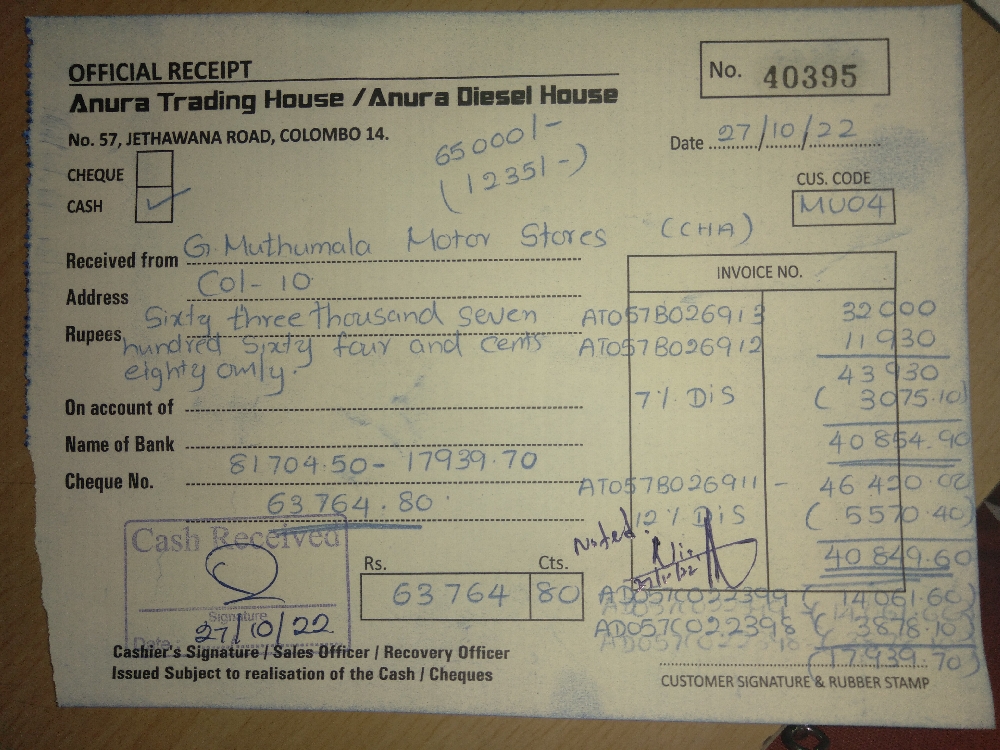 OFFICIAL RECEIPT
No. 40395
Anura Trading House / Anura Diesel House
No. 57, JETHAWANA ROAD, COLOMBO 14.
Date 27/10/22
65000/-
(12351-)
CHEQUE
CASH ✓
CUS. CODE
MU04
Received from G. Muthumala Motor Stores (CHA)
Address Col - 10
INVOICE NO.
Rupees Sixty three thousand seven
hundred sixty four and cents
eighty only.
AT057B026913 32000
AT057B026912 11930
43930
7% DiS (3075.10)
40854.90
On account of
Name of Bank
81704.50 - 17939.70
Cheque No.
63764.80
AT057B026911 - 46420.00
12% DiS (5570.40)
40849.60
Noted.
Cash Received
Signature
Date: 27/10/22
Rs. Cts.
63764 80
AD057C022399 (14061.60)
AD057C022398 (3878.10)
(17939.70)
Cashier's Signature / Sales Officer / Recovery Officer
Issued Subject to realisation of the Cash / Cheques
CUSTOMER SIGNATURE & RUBBER STAMP